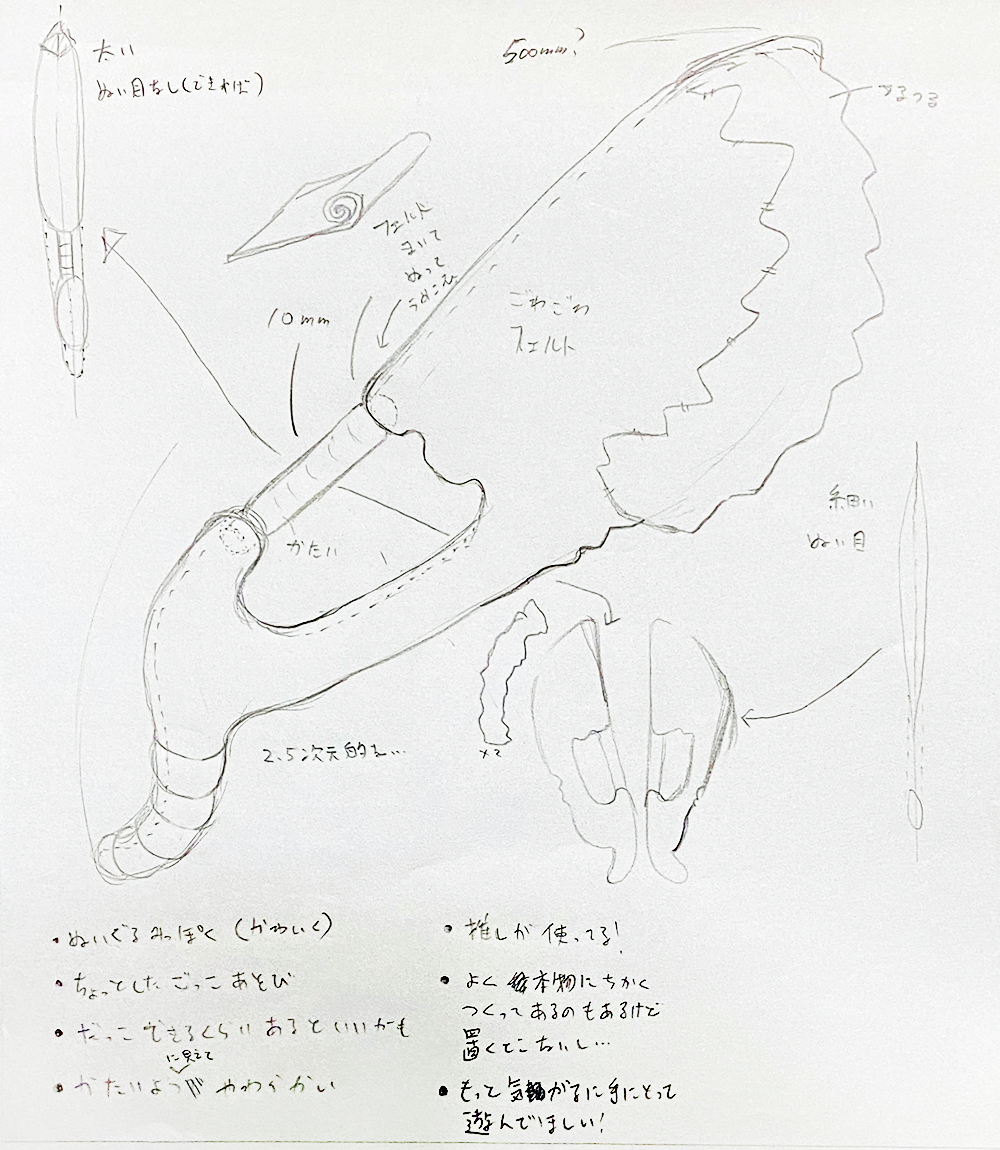 太い
ぬい目なし(できれば)
500mm?
つるつる
フェルト
まいて
ぬって
うめこむ
10mm
ごわごわ
フェルト
かたい
細い
ぬい目
2.5次元的な…
×2
・ぬいぐるみっぽく (かわいく)
・ちょっとした ごっこ あそび
・だっこ できるくらい あるといいかも
に見えて
・かたいよう やわらかい
・推しが 使ってる!
・よく 本物にちかく
つくってあるのもあるけど
置くとこないし…
・もっと 気がるに手にとって
遊んでほしい!